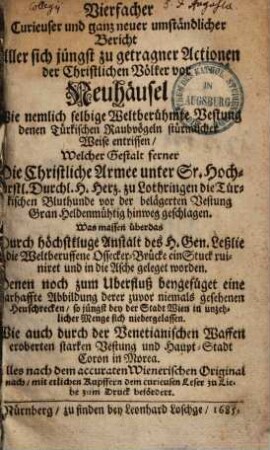 Collegij S. J. Augustæ
Vierfacher
Curieuser und ganz neuer umständlicher
Bericht
Aller sich jüngst zu getragner Actionen
der Christlichen Völker vor
Neuhäusel
Wie nemlich selbige Weltberühmte Vestung
denen Türkischen Raubvögeln stürmischer
Weise entrissen /
Welcher Gestalt ferner
Die Christliche Armee unter Sr. Hoch-
fürstl. Durchl. H. Herz. zu Lothringen die Tür-
kischen Bluthunde vor der belägerten Vestung
Gran Heldenmühtig hinweg geschlagen.
Was massen überdas
Durch höchstkluge Anstalt des H. Gen. Leßlie
die Weltberuffene Ossecker-Brücke ein Stuck rui-
niret und in die Asche geleget worden.
Denen noch zum Uberfluß bengefüget eine
warhaffte Abbildung derer zuvor niemals gesehenen
Heuschrecken / so jüngst bey der Stadt Wien in unzeh-
licher Menge sich niedergelassen.
Wie auch durch der Venetianischen Waffen
eroberten starken Vestung und Haupt-Stadt
Coron in Morea.
Alles nach dem accuraten Wienerischen Original
nach / mit etlichen Kupffern dem curieusen Leser zu Lie-
be zum Druck befördert.
Nürnberg / zu finden bey Leonhard Loschge / 1685.
IN
AUGSBURG